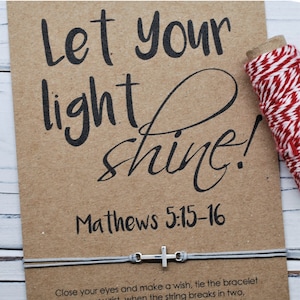 Let your
light
shine!
Mathews 5:15-16
Close your eyes and make a wish, tie the bracelet
when the string breaks in two,